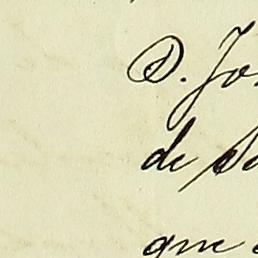 D. Jo
de
que